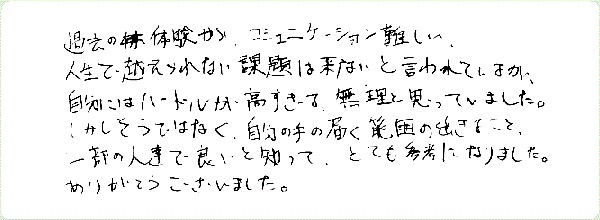 過去の体験から、コミュニケーション難しい、
人生で越えられない課題は来ないと言われていますが、
自分にはハードルが高すぎる、無理と思っていました。
しかしそうではなく、自分の手の届く範囲の出きること、
一部の人達で良いと知って、とても参考になりました。
ありがとうございました。